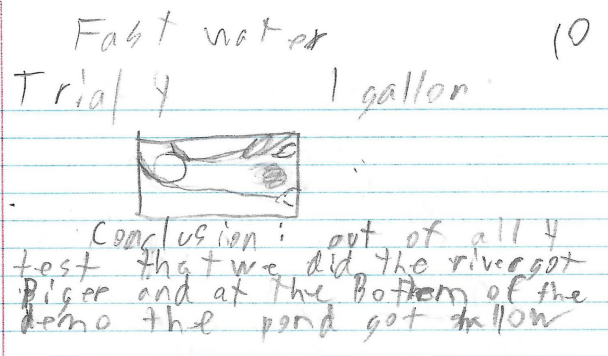 Fast water 10
Trial 4 1 gallon
Conclusion: out of all 4
test that we did the river got
Biger and at the Bottem of the
demo the pond got shallow